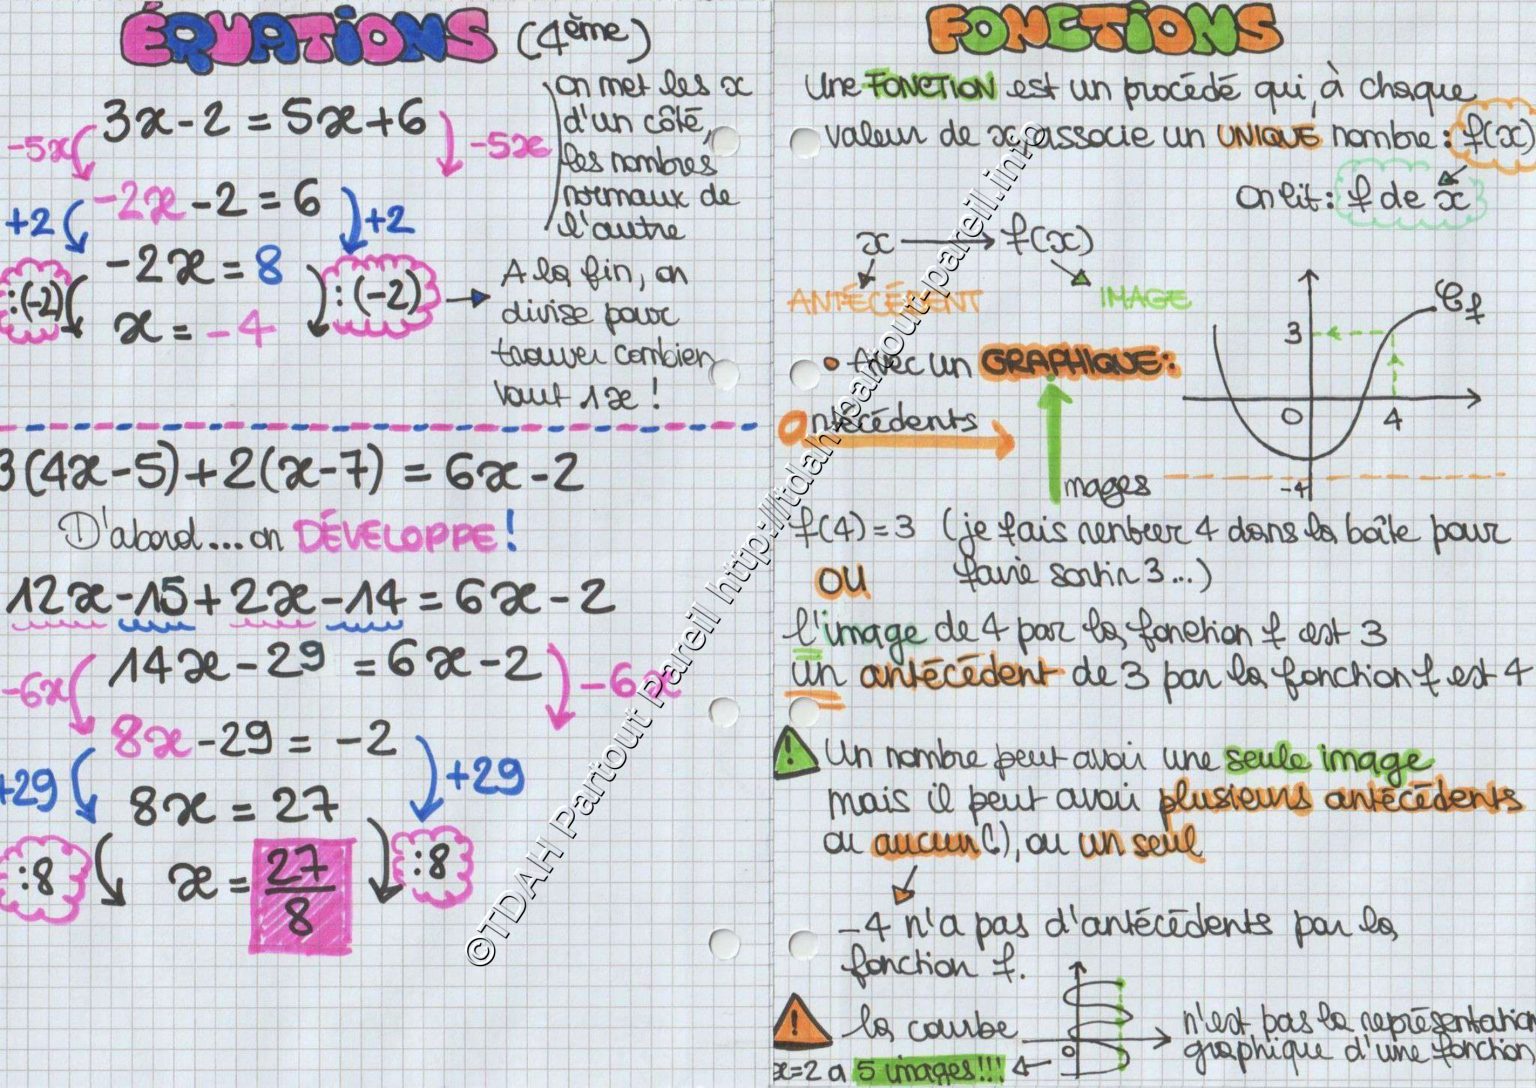 ÉQUATIONS (4ème)
3x-2 = 5x+6
-5x
-5x
-2x-2 = 6
+2
+2
-2x = 8
:(-2)
:(-2)
x = -4
on met les x
d'un côté,
les nombres
normaux de
l'autre
A la fin, on
divise pour
trouver combien
vaut 1x !
3(4x-5)+2(x-7) = 6x-2
D'abord... on DÉVELOPPE !
12x-15+2x-14 = 6x-2
14x-29 = 6x-2
-6x
-6x
8x-29 = -2
+29
+29
8x = 27
:8
:8
x = 27/8
FONCTIONS
Une FONCTION est un procédé qui, à chaque
valeur de x, associe un UNIQUE nombre : f(x)
on lit : f de x
x → f(x)
ANTÉCÉDENT
IMAGE
• Avec un GRAPHIQUE :
antécédents
images
Cf
3
0
4
-4
f(4) = 3 (je fais rentrer 4 dans la boîte pour
OU faire sortir 3...)
l'image de 4 par la fonction f est 3
un antécédent de 3 par la fonction f est 4
! Un nombre peut avoir une seule image
mais il peut avoir plusieurs antécédents
ou aucun(!), ou un seul
-4 n'a pas d'antécédents par la
fonction f.
! la courbe
0
n'est pas la représentation
graphique d'une fonction
x=2 a 5 images!!!
©TDAH Partout Pareil http://tdah-partout-pareil.info